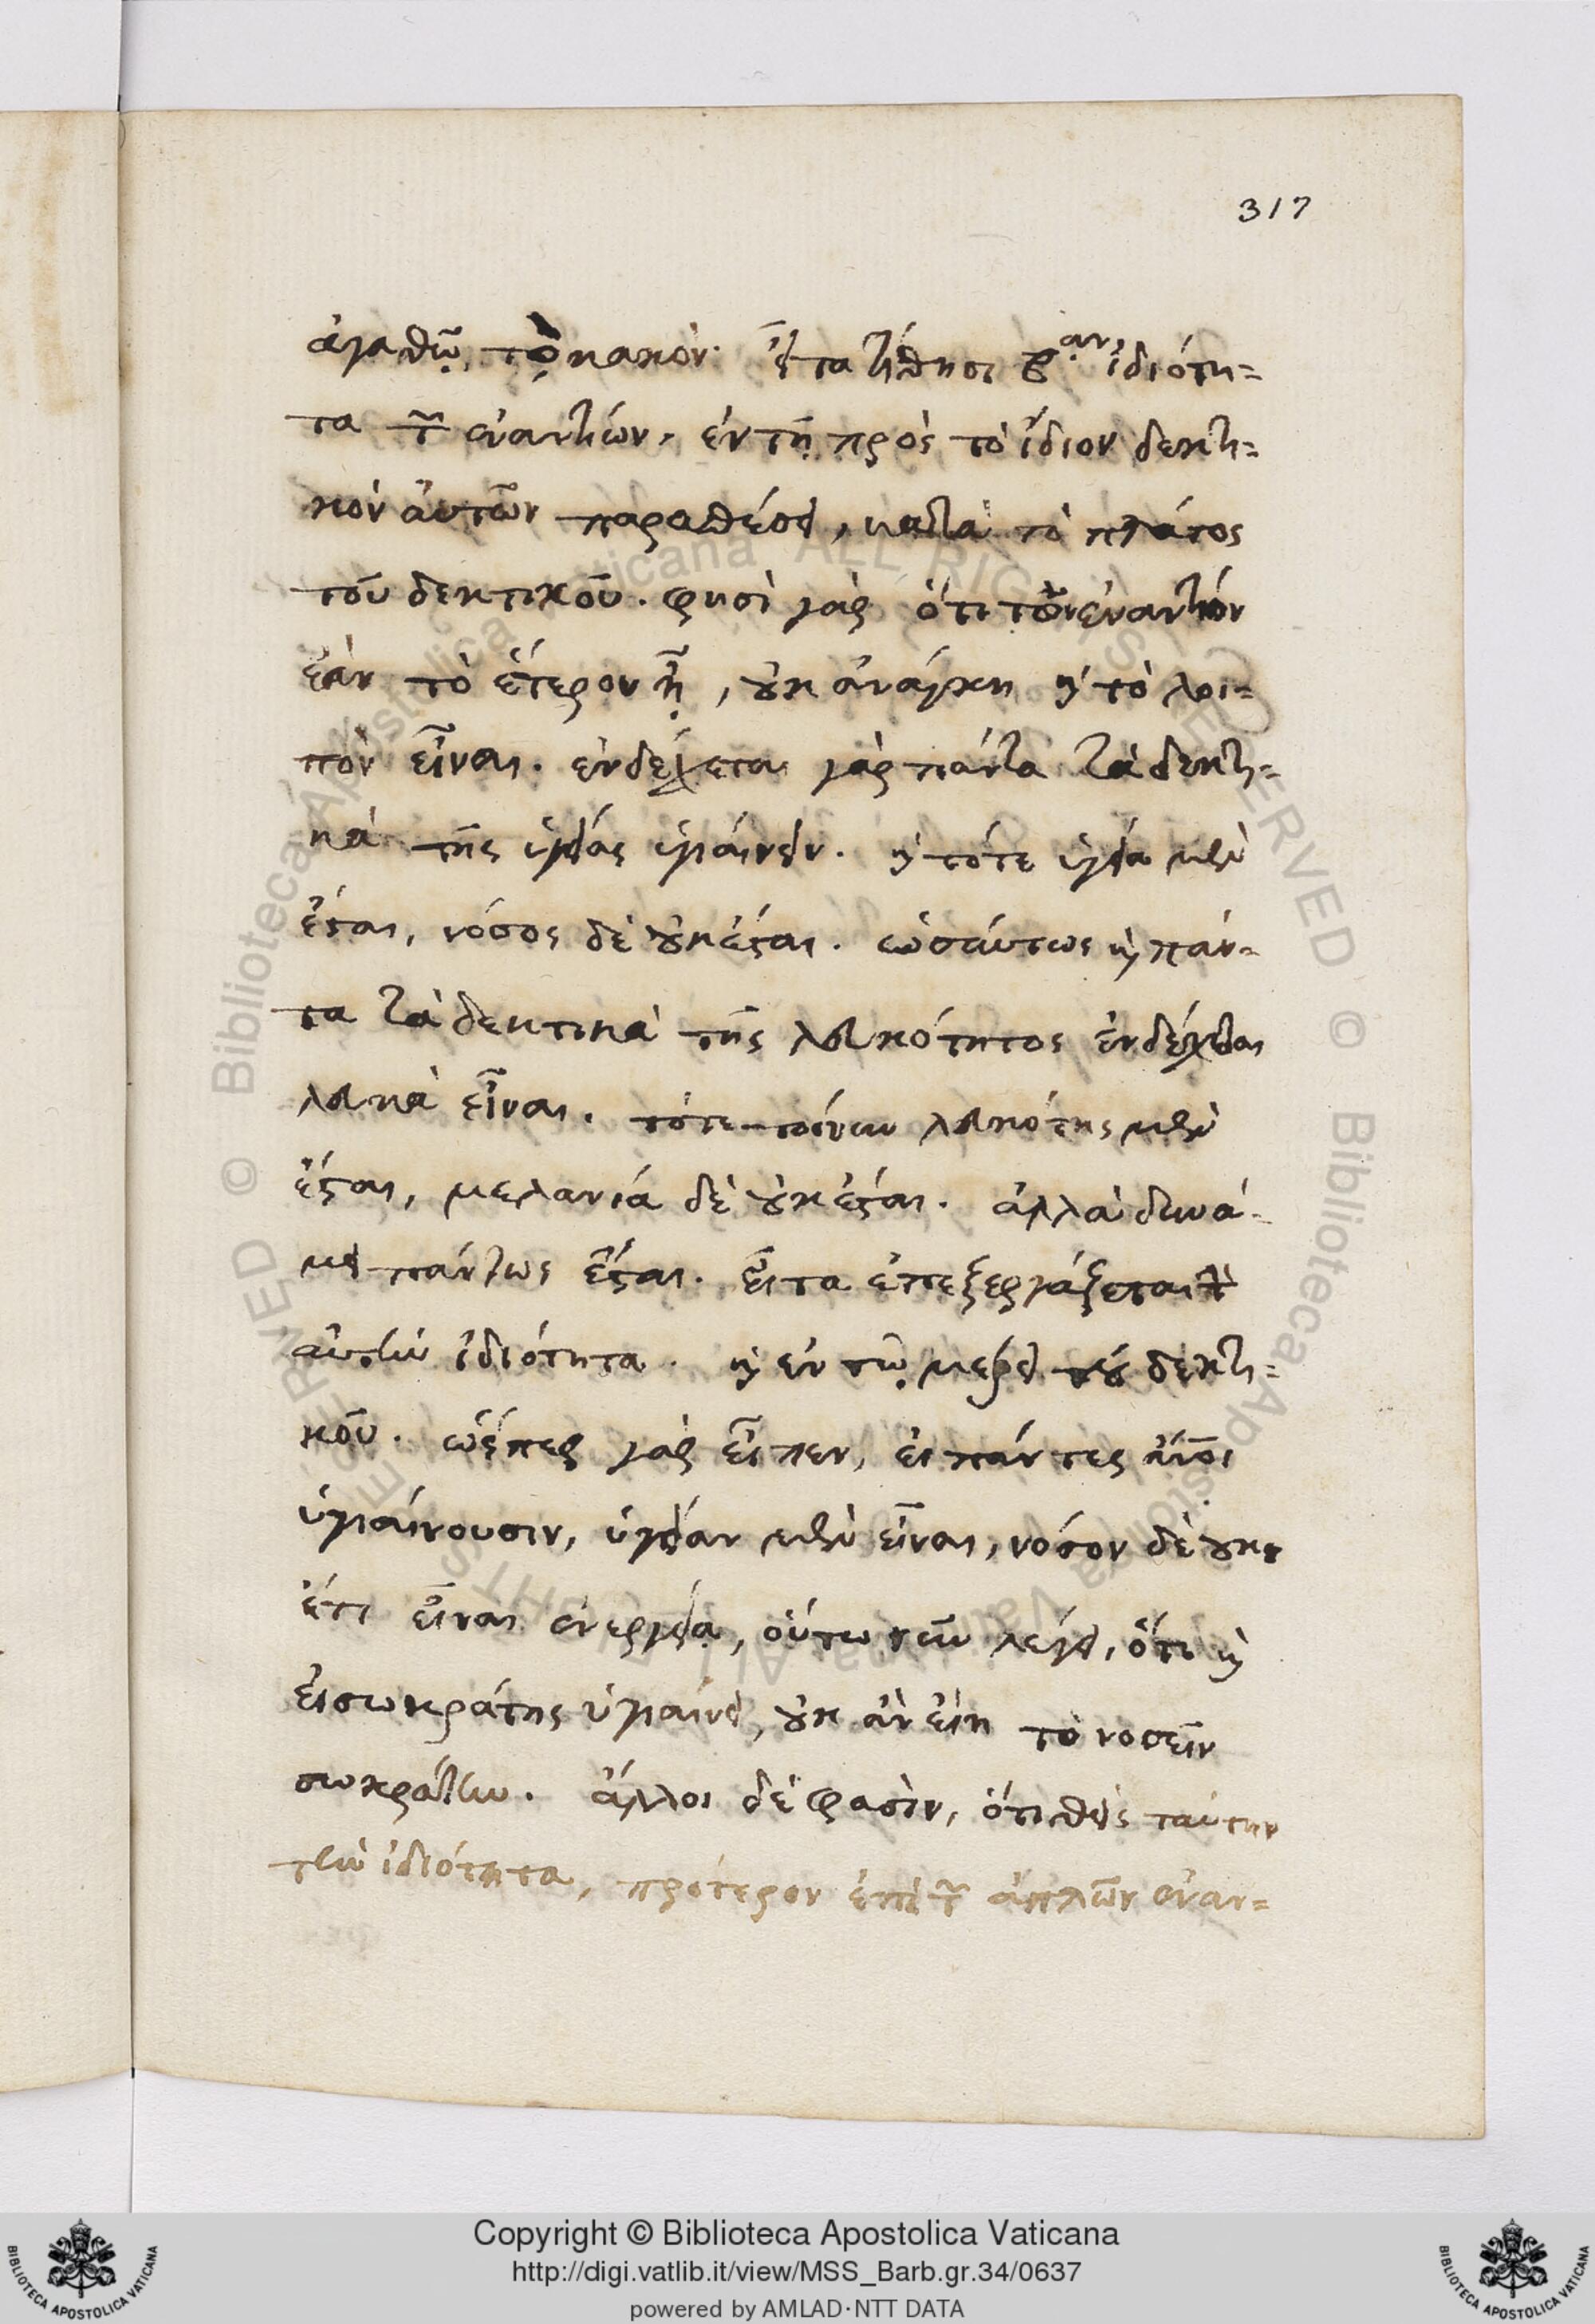 317
ἀγαθῷ, τὸ κακόν· εἶτα τίθησι βαν ἰδιότη-
τα τῶν ἐναντίων, ἐν τῇ πρὸς τὸ ἴδιον δεκτι-
κὸν αὐτῶν παραθέσει, κατὰ τὸ πλάτος
τοῦ δεκτικοῦ. φησὶ γὰρ ὅτι τῶν ἐναντίων
ἐὰν τὸ ἕτερον ᾖ, οὐκ ἀνάγκη καὶ τὸ λοι-
πὸν εἶναι. ἐνδέχεται γὰρ πάντα τὰ δεκτι-
κὰ τῆς ὑγείας ὑγιαίνειν. καὶ τότε ὑγεία μὲν
ἔσται, νόσος δὲ οὐκ ἔσται. ὡσαύτως καὶ πάν-
τα τὰ δεκτικὰ τῆς λευκότητος ἐνδέχεται
λευκὰ εἶναι. τότε τοίνυν λευκότης μὲν
ἔσται, μελανία δὲ οὐκ ἔσται. ἀλλὰ δυνά-
μει πάντως ἔσται. εἶτα ἐπεξεργάζεται τὴν
αὐτὴν ἰδιότητα. καὶ ἐν τῷ μέρει τοῦ δεκτι-
κοῦ. ὥσπερ γὰρ εἶπεν, εἰ πάντες ἄνοι
ὑγιαίνουσιν, ὑγείαν μὲν εἶναι, νόσον δὲ οὐκ
ἔτι εἶναι ἐνεργείᾳ, οὕτω νῦν λέγει, ὅτι καὶ
εἰ σωκράτης ὑγιαίνει, οὐκ ἂν εἴη τὸ νοσεῖν
σωκράτην. ἄλλοι δέ φασιν, ὅτι θεὶς ταύτην
τὴν ἰδιότητα, πρότερον ἐπὶ τῶν ἁπλῶν ἐναν-
Copyright © Biblioteca Apostolica Vaticana
http://digi.vatlib.it/view/MSS_Barb.gr.34/0637
powered by AMLAD·NTT DATA